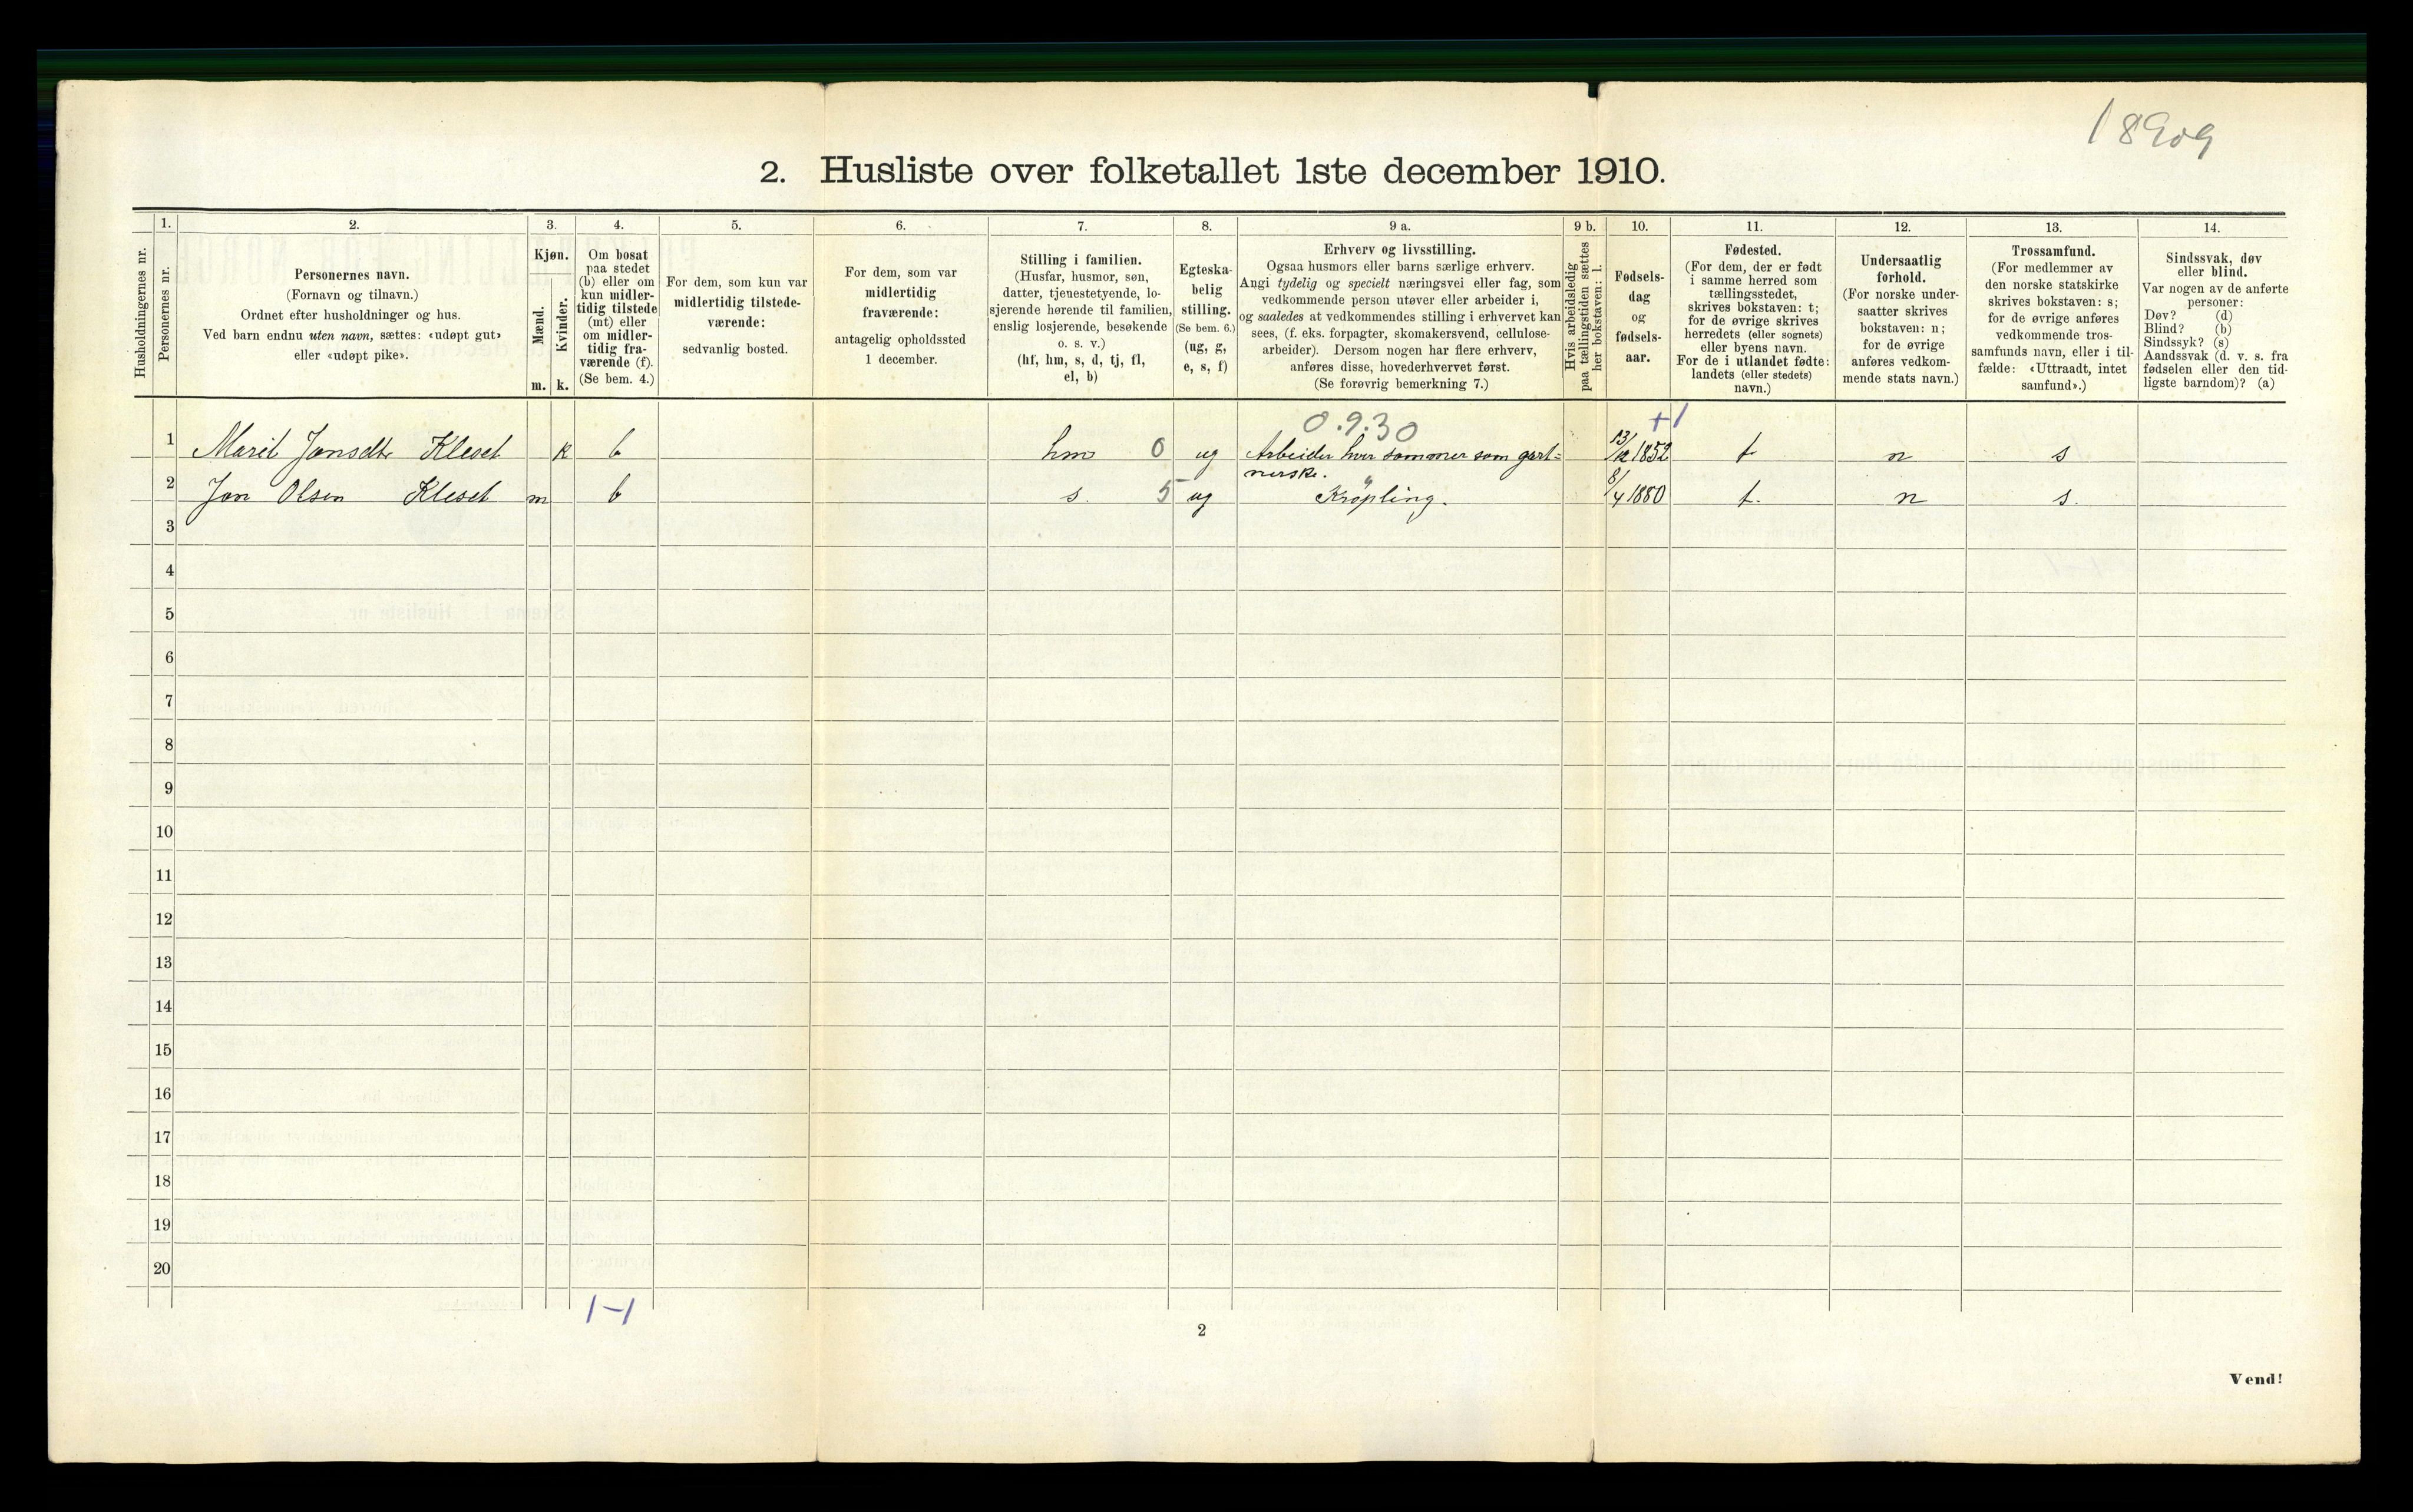 18909
2. Husliste over folketallet 1ste december 1910.
Husholdningernes nr.
1.
Personernes nr.
2.
Personernes navn.
(Fornavn og tilnavn.)
Ordnet efter husholdninger og hus.
Ved barn endnu uten navn, sættes: «udøpt gut»
eller «udøpt pike».
3.
Kjøn.
Mænd.
m.
Kvinder.
k.
4.
Om bosat
paa stedet
(b) eller om
kun midler-
tidig tilstede
(mt) eller
om midler-
tidig fra-
værende (f).
(Se bem. 4.)
5.
For dem, som kun var
midlertidig tilstede-
værende:
sedvanlig bosted.
6.
For dem, som var
midlertidig
fraværende:
antagelig opholdssted
1 december.
7.
Stilling i familien.
(Husfar, husmor, søn,
datter, tjenestetyende, lo-
sjerende hørende til familien,
enslig losjerende, besøkende
o. s. v.)
(hf, hm, s, d, tj, fl,
el, b)
8.
Egteska-
belig
stilling.
(Se bem. 6.)
(ug, g,
e, s, f)
9 a.
Erhverv og livsstilling.
Ogsaa husmors eller barns særlige erhverv.
Angi tydelig og specielt næringsvei eller fag, som
vedkommende person utøver eller arbeider i,
og saaledes at vedkommendes stilling i erhvervet kan
sees, (f. eks. forpagter, skomakersvend, cellulose-
arbeider). Dersom nogen har flere erhverv,
anføres disse, hovederhvervet først.
(Se forøvrig bemerkning 7.)
9 b.
Hvis arbeidsledig
paa tællingstiden sættes
her bokstaven: l.
10.
Fødsels-
dag
og
fødsels-
aar.
11.
Fødested.
(For dem, der er født
i samme herred som
tællingsstedet,
skrives bokstaven: t;
for de øvrige skrives
herredets (eller sognets)
eller byens navn.
For de i utlandet fødte:
landets (eller stedets)
navn.)
12.
Undersaatlig
forhold.
(For norske under-
saatter skrives
bokstaven: n;
for de øvrige
anføres vedkom-
mende stats navn.)
13.
Trossamfund.
(For medlemmer av
den norske statskirke
skrives bokstaven: s;
for de øvrige anføres
vedkommende tros-
samfunds navn, eller i til-
fælde: «Uttraadt, intet
samfund».)
14.
Sindssvak, døv
eller blind.
Var nogen av de anførte
personer:
Døv? (d)
Blind? (b)
Sindssyk? (s)
Aandssvak (d. v. s. fra
fødselen eller den tid-
ligste barndom)? (a)
0.9.30 +1
1 Marit Jonsdtr Kleset k b hm 0 ug Arbeider hver sommer som gart- 13/12 1852 t n s
nerske.
2 Jon Olsen Kleset m b s. 5 ug Krøpling. 8/4 1880 t. n s.
3
4
5
6
7
8
9
10
11
12
13
14
15
16
17
18
19
20
1-1
2
Vend!